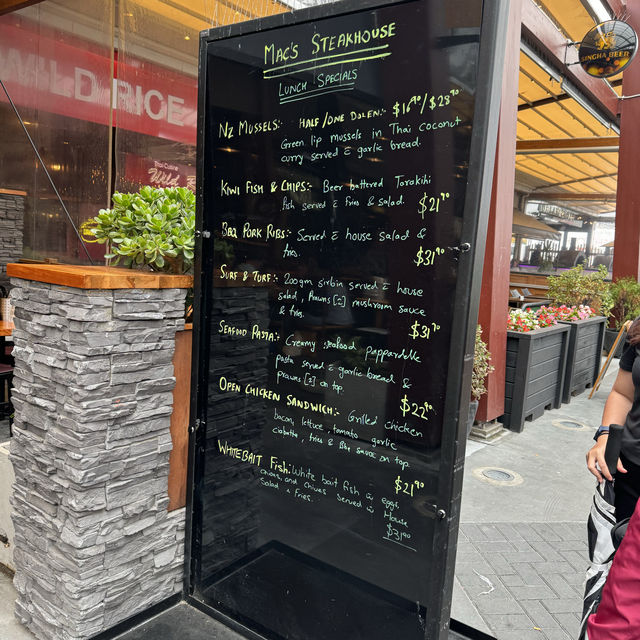 MAC'S STEAKHOUSE
LUNCH SPECIALS
NZ MUSSELS:- HALF/ONE DOZEN:- $16⁹⁰/$28⁹⁰
Green lip mussels in Thai coconut
curry served c̄ garlic bread.
KIWI FISH & CHIPS:- Beer battered Tarakihi
fish served c̄ fries & salad. $21⁹⁰
BBQ PORK RIBS:- Served c̄ house salad &
fries. $31⁹⁰
SURF & TURF:- 200gm sirloin served c̄ house
salad, Prawns [2] mushroom sauce
& fries. $31⁹⁰
SEAFOOD PASTA:- Creamy seafood Pappardelle
pasta served c̄ garlic bread &
prawns [2] on top. $22⁹⁰
OPEN CHICKEN SANDWICH:- Grilled chicken
bacon, lettuce, tomato garlic
ciabatta, fries & BBQ sauce on top.
$21⁹⁰
WHITEBAIT Fish: White bait fish w eggs,
onions, and chives Served w House
Salad & Fries. $31⁹⁰
WILD RICE
Wild R
SINGHA BEER